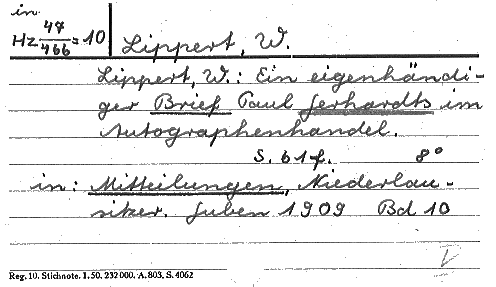 in
Hz 47/466 = 10
Lippert, W.
Lippert, W.: Ein eigenhändi-
ger Brief Paul Gerhardts im
Autographenhandel.
S. 61f. 8°
in: Mitteilungen, Niederlau-
sitzer. Guben 1909 Bd 10
V
Reg. 10. Stichnote. 1. 50. 232000. A. 803, S. 4062